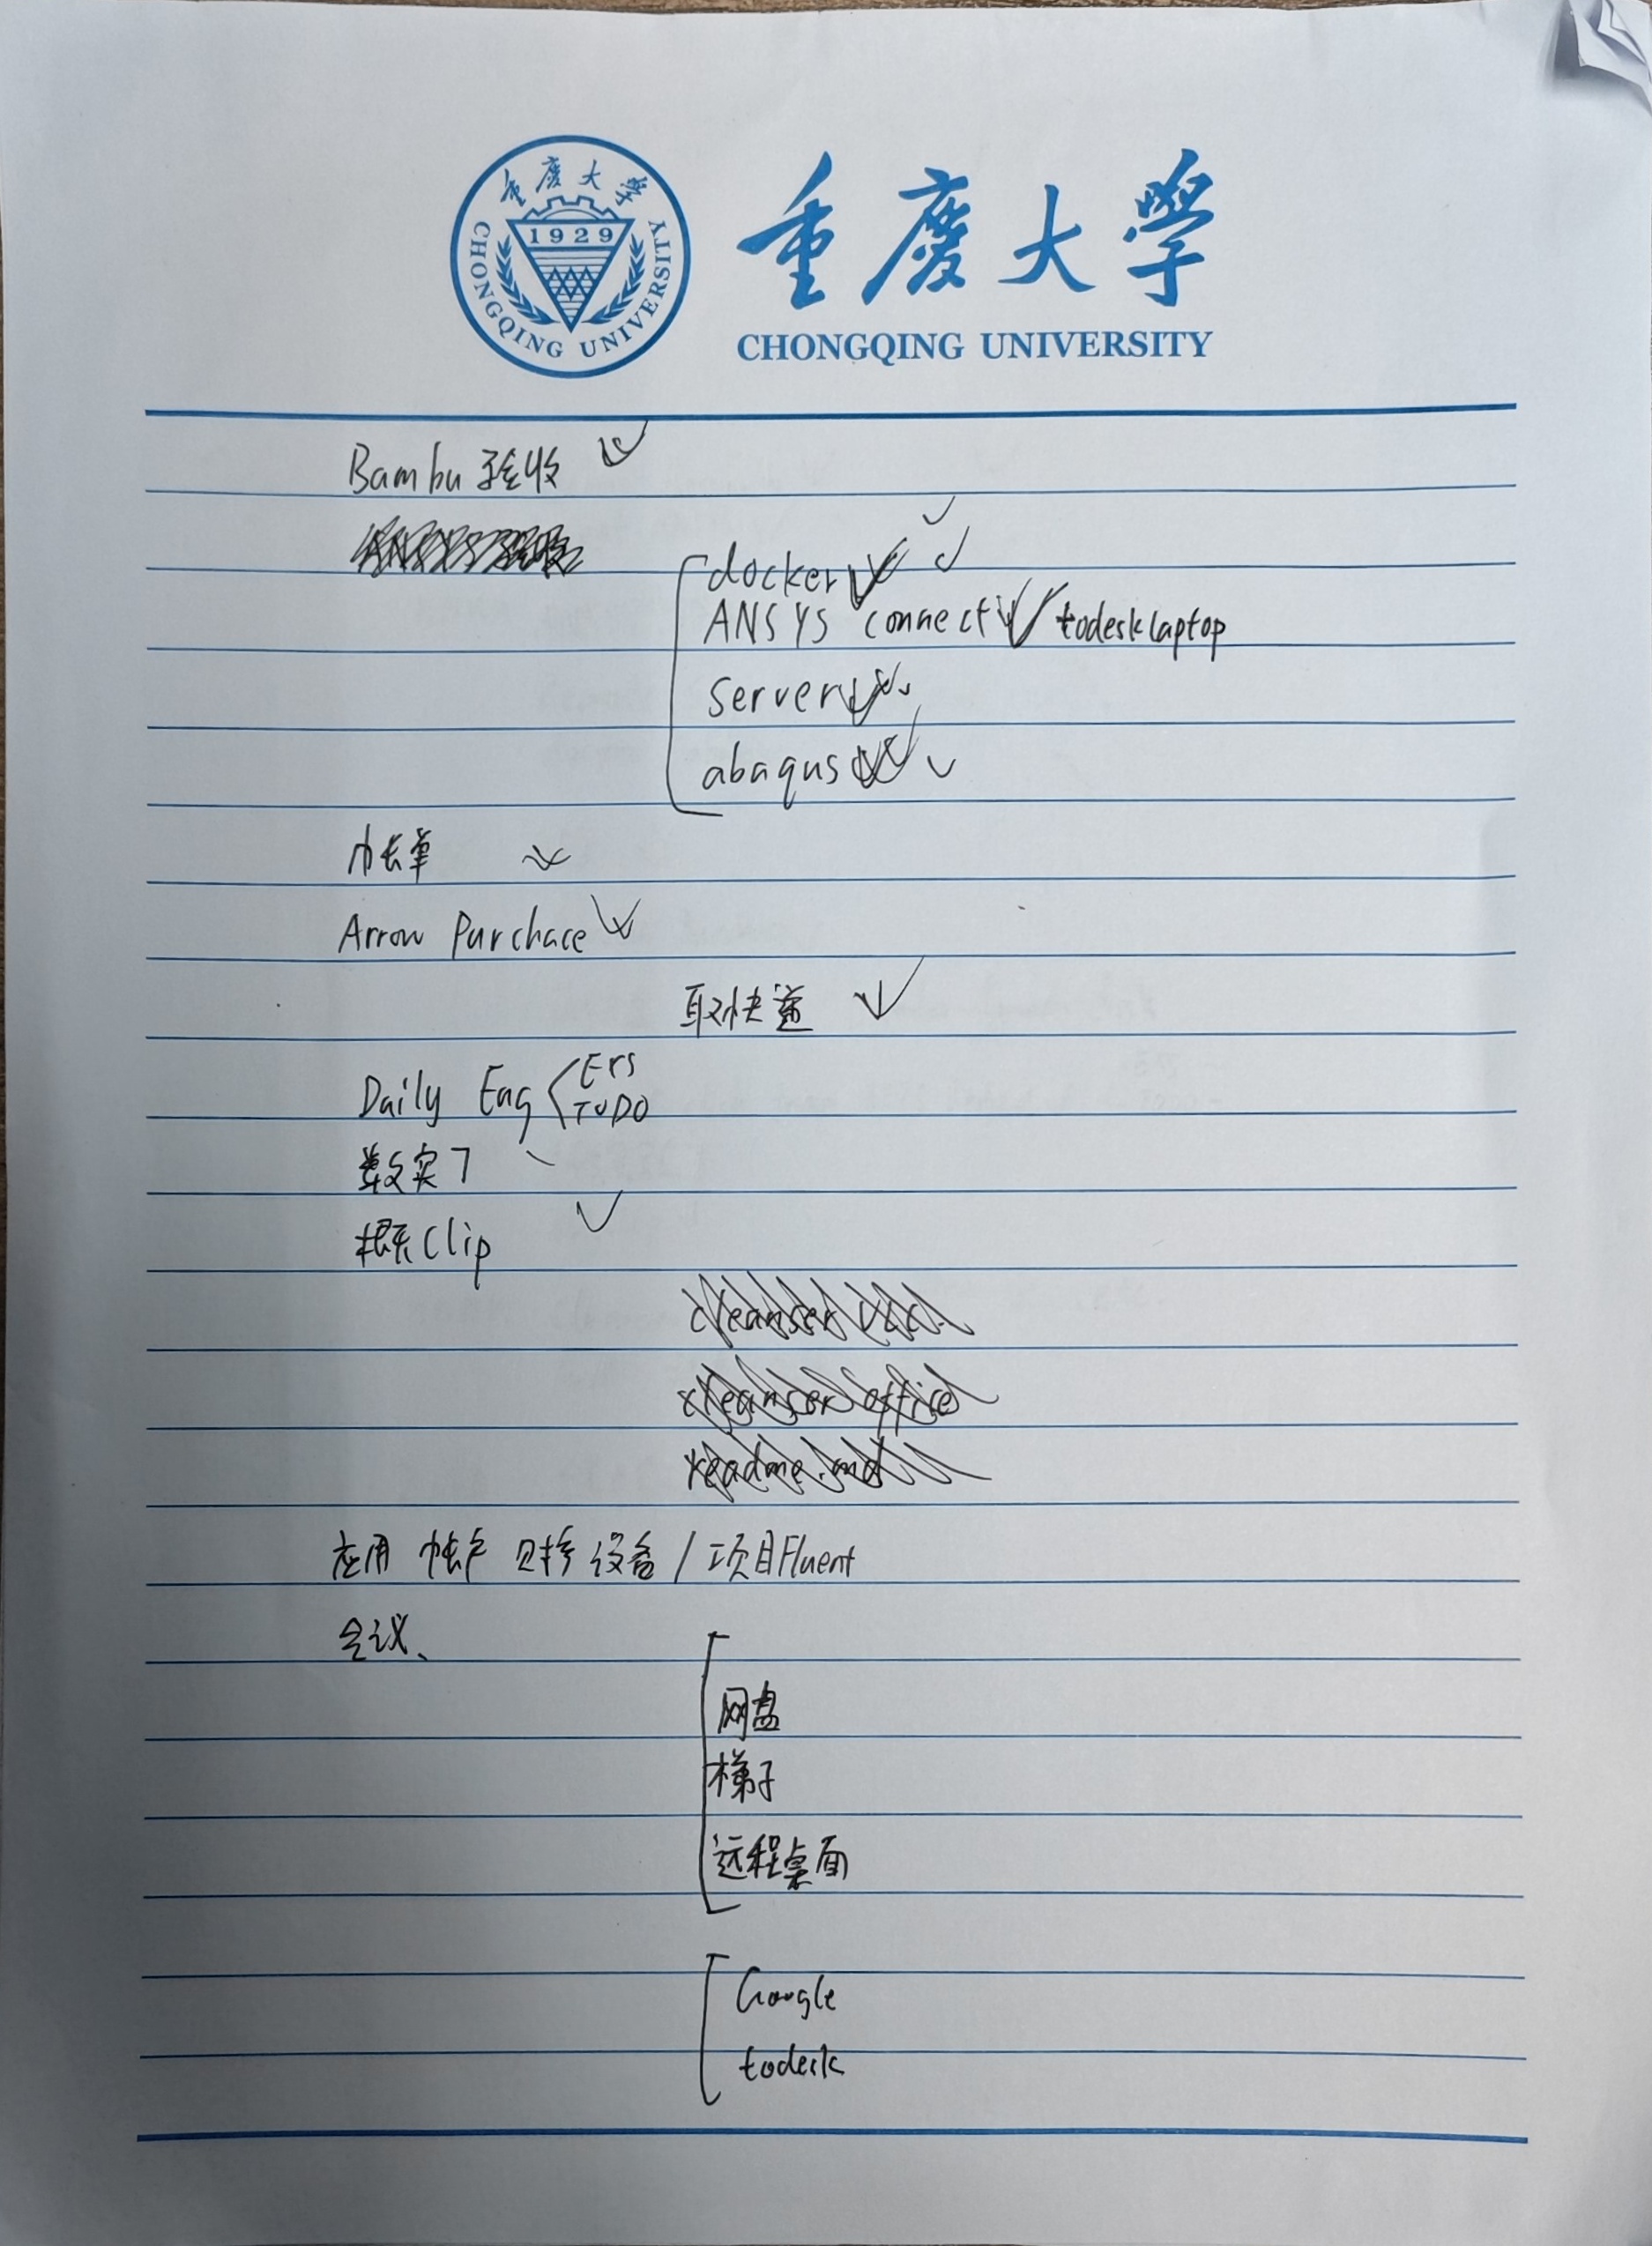 重慶大學
1929
CHONGQING UNIVERSITY
重慶大學
CHONGQING UNIVERSITY
Bambu 验收
docker
ANSYS connect todesk laptop
server
abaqus
帐单
Arrow Purchace
取快递
Daily Eng
Ers
TODO
数实
Clip
cleanser
cleanser office
readme.md
应用 帐户 设备 / 项目Fluent
会议、
网盘
梯子
远程桌面
Google
todesk